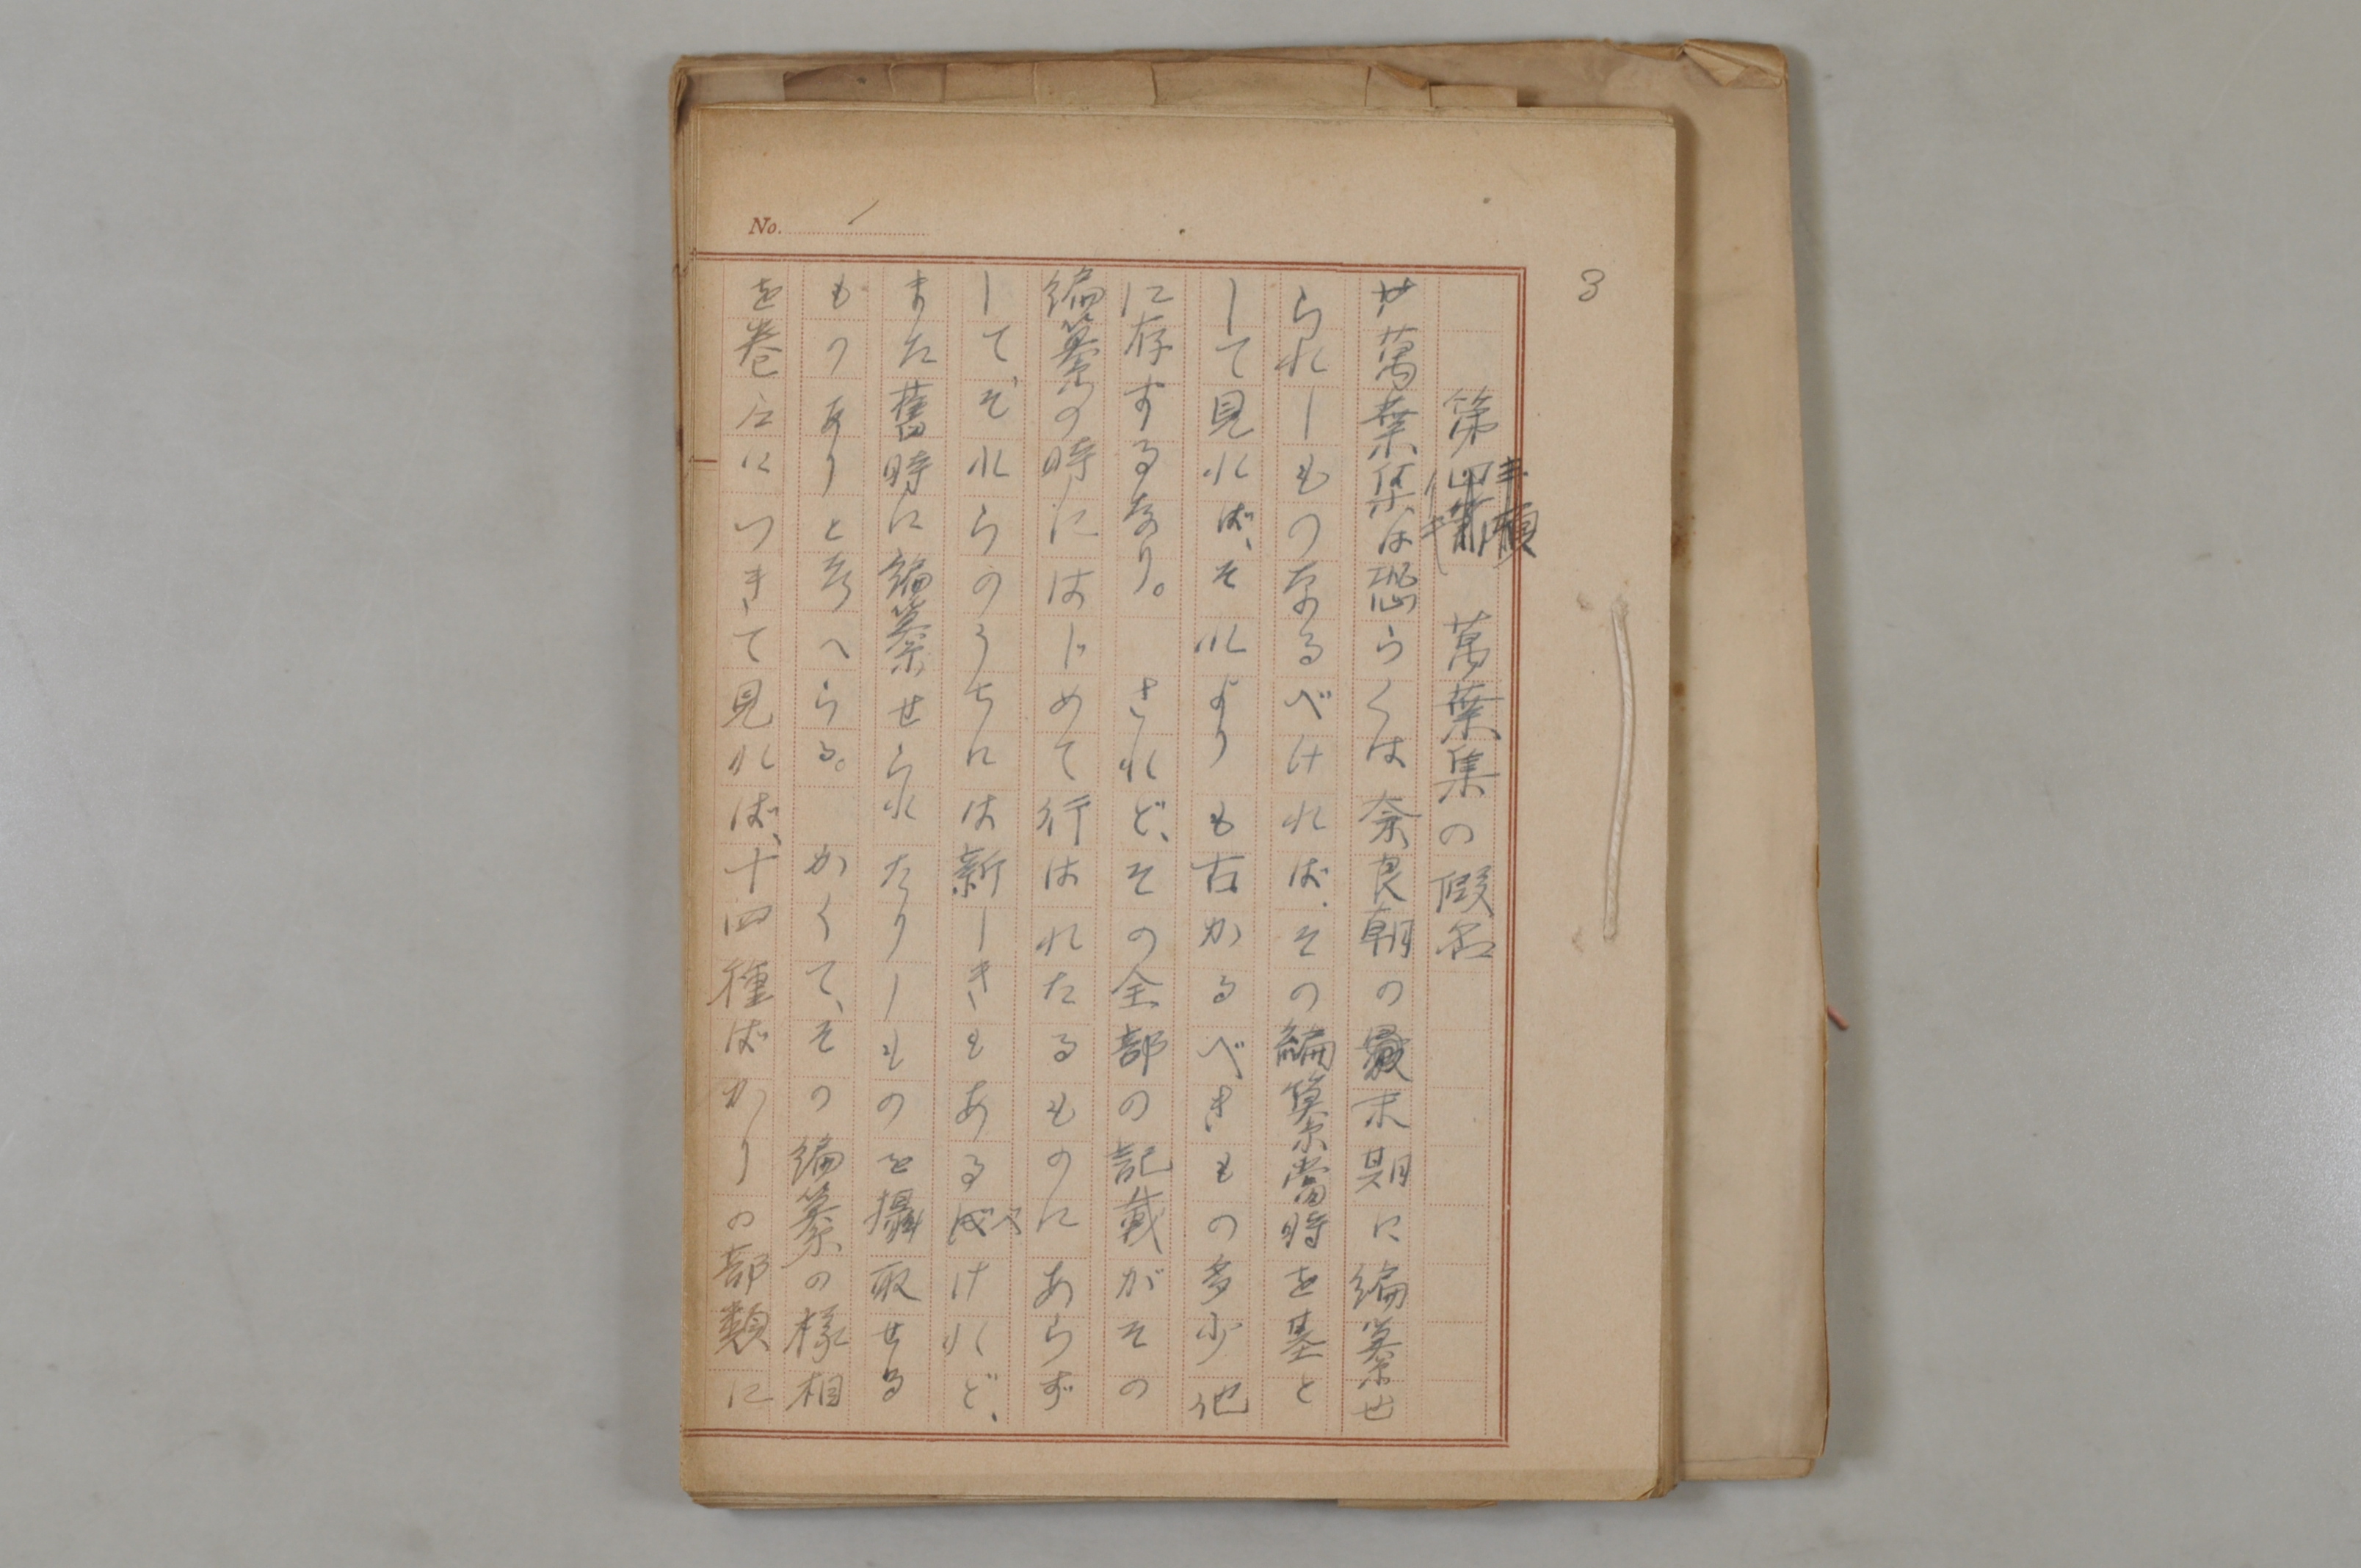 No. 1
3
第四 萬葉集の假名
萬葉集は恐らくは奈良朝の最末期に編纂せ
られしものなるべければ、その編纂當時を基と
して見れば、それよりも古かるべきもの多少他
に存するなり。 されど、その全部の記載がその
編纂の時にはじめて行はれたるものにあらず
して、それらのうちには新しきもあるべけれど、
また舊時に編纂せられたりしものを攝取せる
ものありと考へらる。 かくて、その編纂の様相
を巻々につきて見れば、十四種ばかりの部類に